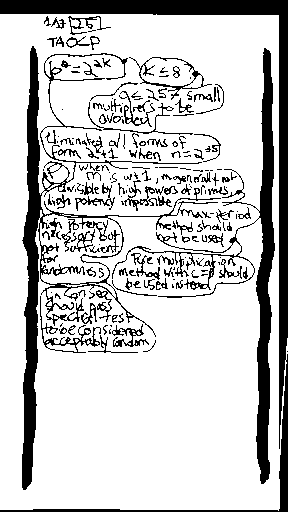 TAOCP
k ≤ 8
small
multipliers to be
avoided
Eliminated all forms of
form 2 +1 when n=2
when
m is w±1, m generally not
divisible by high powers of primes,
high potency impossible
max-period
method should
not be used
high potency
necessary but
not sufficient
for
randomness
Pure multiplication
method with c=0 should
be used instead
should pass
spectral test
to be considered
acceptably random